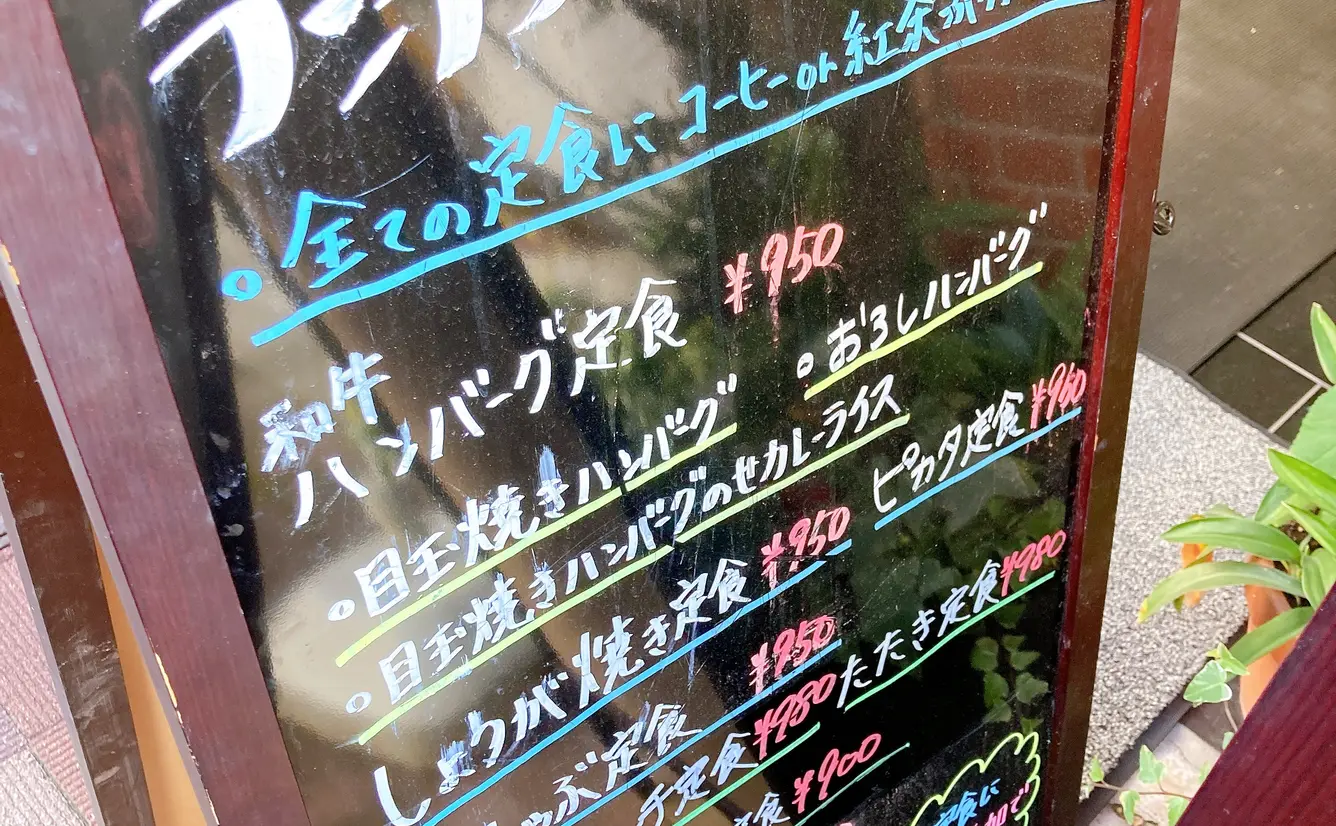 ランチ
全ての定食にコーヒーor紅茶
和牛
ハンバーグ定食 ¥950
目玉焼きハンバーグ
おろしハンバーグ
目玉焼きハンバーグのせカレーライス
しょうが焼き定食 ¥950
ピカタ定食 ¥980
ゃぶ定食 ¥950
たたき定食 ¥980
チ定食 ¥980
定食 ¥900
定食に